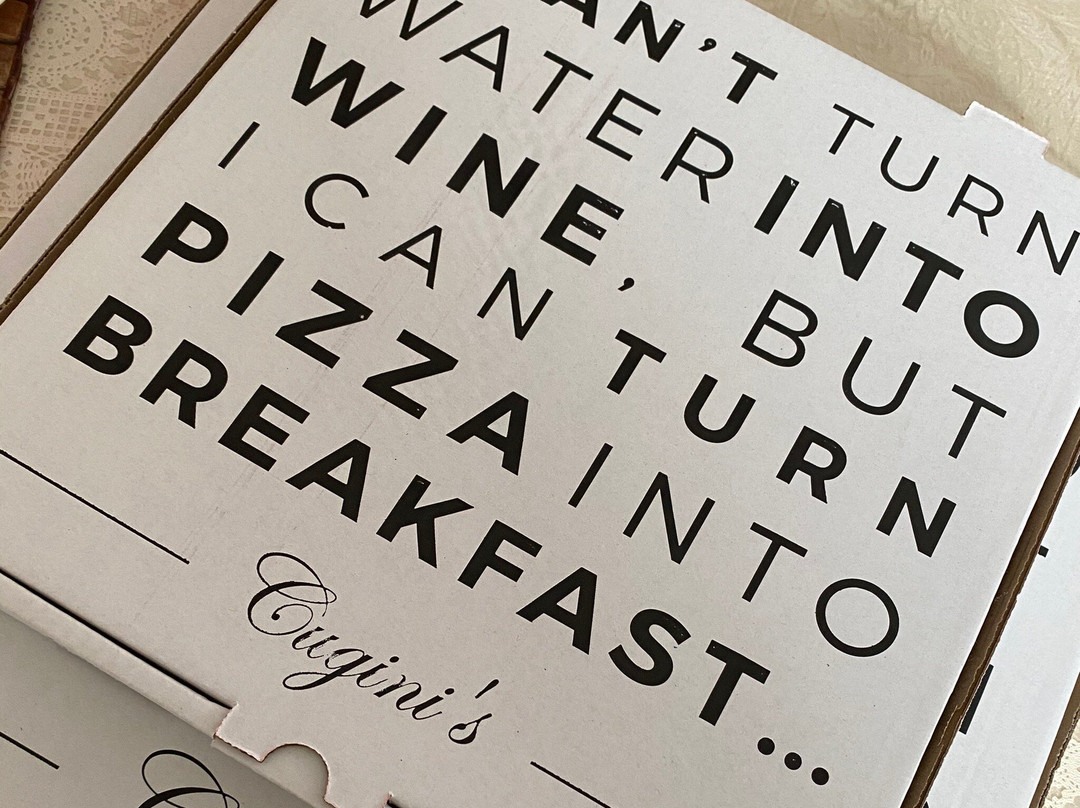 AN'T TURN
WATER INTO
WINE, BUT
I CAN TURN
PIZZA INTO
BREAKFAST...
Cugini's